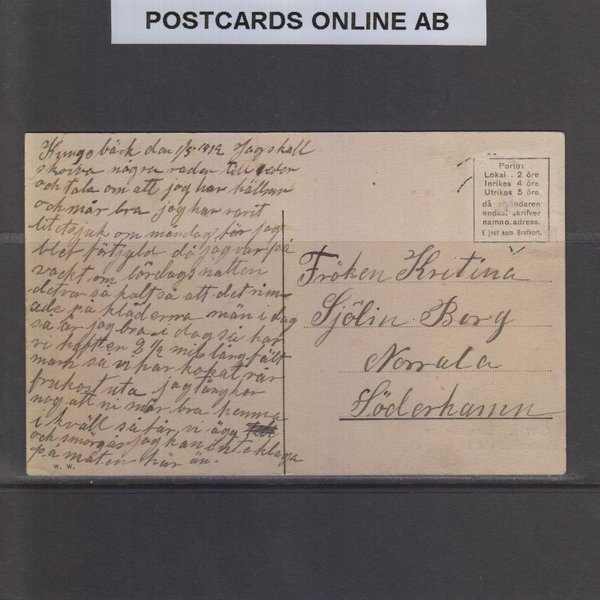 POSTCARDS ONLINE AB
Kungsbäck den 1/5 1912 Jag skall
skriva några rader till eder
och tala om att jag har hälsan
och mår bra jag har varit
lite sjuk om måndag för jag
blef förkyld då jag var på
vackt om lördags natten
det var så kalt så att det rim
ade på kläderna män i dag
så är jag bra i dag så har
vi haft en 2 1/2 mils lång fält
mars så vi har kokat vår
frukost uta jag
nog att ni mår bra hemma
i kväll så får vi ägg
och smörgås jag kan inte klaga
på maten här än.
W. W.
Porto:
Lokal . 2 öre
Inrikes 4 öre
Utrikes 5 öre
då afsändaren
endast skrifver
namn o. adress.
Ejest som Brefkort.
Fröken Kritina
Sjölin Borg
Norrala
Söderhamn